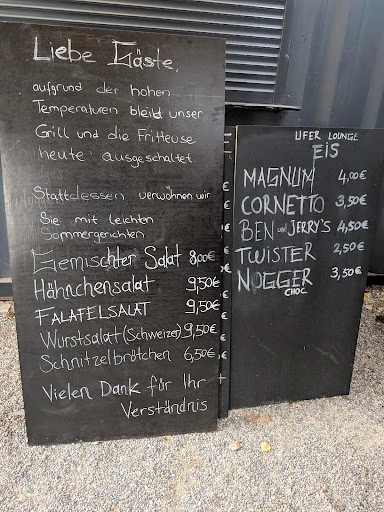 Liebe Gäste,
aufgrund der hohen
Temperaturen bleibt unser
Grill und die Fritteuse
heute ausgeschaltet.
Stattdessen verwöhnen wir
Sie mit leichten
Sommergerichten
Gemischter Salat 8,00€
Hähnchensalat 9,50€
FALAFELSALAT 9,50€
Wurstsalat (Schweizer) 9,50€
Schnitzelbrötchen 6,50€
Vielen Dank für Ihr
Verständnis
UFER LOUNGE
EIS
MAGNUM 4,00€
CORNETTO 3,50€
BEN und JERRY'S 4,50€
TWISTER 2,50€
NOGGER 3,50€
CHOC